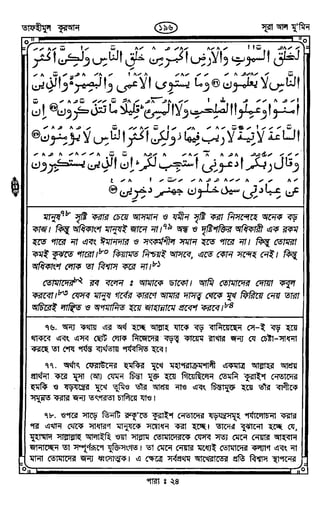 তাফহীমুল কুরআন
১৯৬
সূরা আল মু'মিন
لَخَلْقُ السَّمٰوٰتِ وَالْاَرْضِ اَكْبَرُ مِنْ خَلْقِ النَّاسِ وَلٰكِنَّ اَكْثَرَ
النَّاسِ لَا يَعْلَمُوْنَ وَمَا يَسْتَوِى الْاَعْمٰى وَالْبَصِيْرُ وَالَّذِيْنَ
اٰمَنُوْا وَعَمِلُوا الصّٰلِحٰتِ وَلَا الْمُسِيْٓءُ قَلِيْلًا مَّا تَتَذَكَّرُوْنَ اِنَّ
السَّاعَةَ لَاٰتِيَةٌ لَّا رَيْبَ فِيْهَا وَلٰكِنَّ اَكْثَرَ النَّاسِ لَا يُؤْمِنُوْنَ
وَقَالَ رَبُّكُمُ ادْعُوْنِىْٓ اَسْتَجِبْ لَكُمْ اِنَّ الَّذِيْنَ يَسْتَكْبِرُوْنَ
عَنْ عِبَادَتِىْ سَيَدْخُلُوْنَ جَهَنَّمَ دٰخِرِيْنَ
মানুষ৭৮ সৃষ্টি করার চেয়ে আসমান ও যমীন সৃষ্টি করা নিসন্দেহে অনেক বড়
কাজ। কিন্তু অধিকাংশ মানুষই জানে না।৭৯ অন্ধ ও দৃষ্টিশক্তির অধিকারী এক রকম
হতে পারে না এবং ঈমানদার ও সৎকর্মশীল সমান হতে পারে না। কিন্তু তোমরা
কমই বুঝতে পারো।৮০ কিয়ামত নিশ্চয়ই আসবে, এতে কোন সন্দেহ নেই। কিন্তু
অধিকাংশ লোক তা বিশ্বাস করে না।৮১
তোমাদের৮২ রব বলেন : আমাকে ডাকো। আমি তোমাদের দোয়া কবুল
করবো।৮৩ যেসব মানুষ গর্বের কারণে আমার দাসত্ব থেকে মুখ ফিরিয়ে নেয় তারা
অচিরেই লাঞ্ছিত ও অপমানিত হয়ে জাহান্নামে প্রবেশ করবে।৮৪
৭৬. অন্য কথায় এর অর্থ হচ্ছে আল্লাহ যাকে বড় বানিয়েছেন সে-ই বড় হয়ে
থাকবে এবং এসব ছোট লোক নিজেদের বড়ত্ব কায়েম রাখার জন্য যে চেষ্টা-সাধনা
করছে তা শেষ পর্যন্ত ব্যর্থতায় পর্যবসিত হবে।
৭৭. অর্থাৎ ফেরাউনের হুমকির মুখে মহাপরাক্রমশালী একমাত্র আল্লাহর আশ্রয়
প্রার্থনা করে মূসা (আ) যেমন চিন্তা মুক্ত হয়ে গিয়েছিলেন তেমনি কুরাইশ নেতাদের
হুমকি ও ষড়যন্ত্রের মুখে তুমিও তাঁর আশ্রয় নাও এবং চিন্তামুক্ত হয়ে তাঁর বাণীকে
সমুন্নত করার জন্য তৎপরতা চালিয়ে যাও।
৭৮. ওপরে সাড়ে তিনটি রুকূ'তে কুরাইশ নেতাদের ষড়যন্ত্রসমূহ পর্যালোচনা করার
পর এখান থেকে সাধারণ মানুষকে সম্বোধন করা হচ্ছে। তাদের বুঝানো হচ্ছে যে,
মুহাম্মাদ সাল্লাল্লাহু আলাইহি ওয়া সাল্লাম তোমাদেরকে যেসব সত্য মেনে নেয়ার আহবান
জানাচ্ছেন তা সম্পূর্ণরূপে যুক্তিসংগত। তা মেনে নেয়ার মধ্যেই তোমাদের কল্যাণ এবং না
মানা তোমাদের জন্য ধ্বংসাত্মক। এ ক্ষেত্রে সর্বপ্রথম আখেরাতের প্রতি বিশ্বাস স্থাপনের
পারা : ২৪